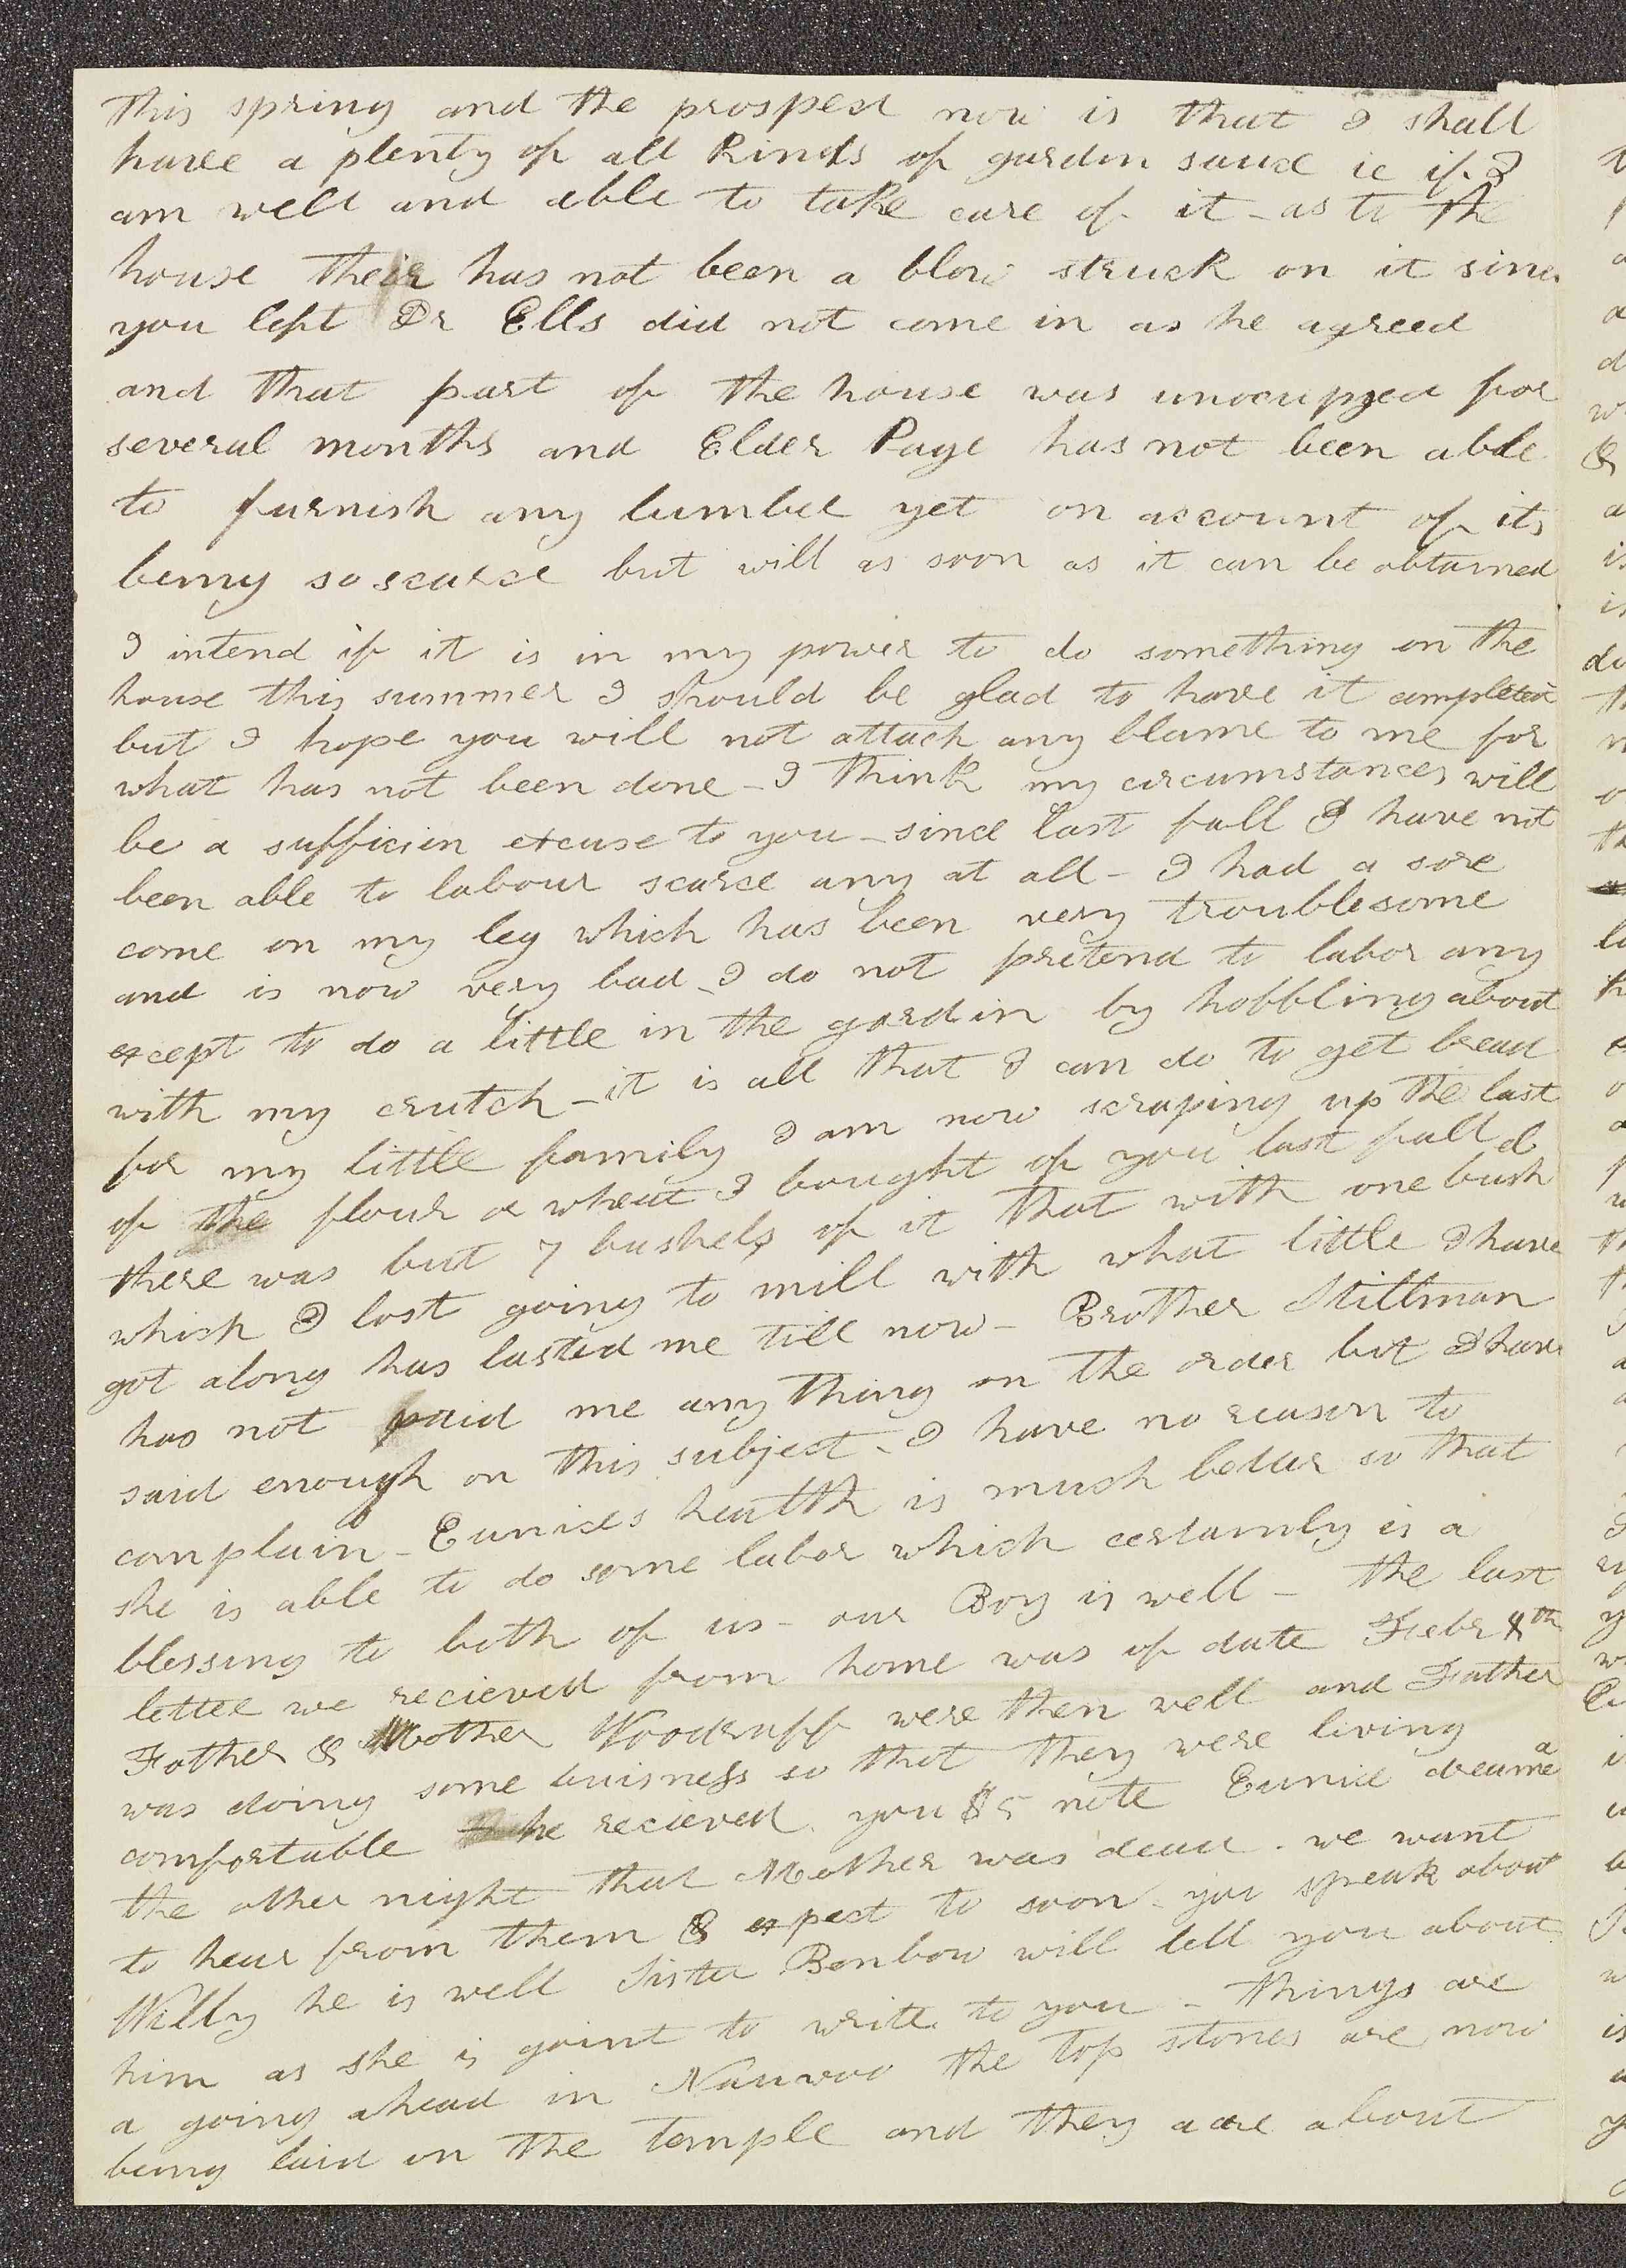 this spring and the prospect now is that I shall
have a plenty of all kinds of garden sauce ie if I
am well and able to take care of it - as to the
house their has not been a blow struck on it since
you left Dr Ells did not come in as he agreed
and that part of the house was unocupyed for
several months and Elder Page has not been able
to furnish any lumber yet on account of its
being so scarce but will as soon as it can be obtained
I intend if it is in my power to do something on the
house this summer I should be glad to have it completed
but I hope you will not attach any blame to me for
what has not been done - I think my circumstances will
be a sufficien excuse to you - since last fall I have not
been able to labour scarce any at all - I had a sore
come on my leg which has been very troublesome
and is now very bad - I do not pretend to labor any
except to do a little in the gardin by hobbling about
with my crutch - it is all that I can do to get bread
for my little family I am now scraping up the last
of the flour or wheat I bought of you last fall
there was but 7 bushels of it that with one bushel
which I lost going to mill with what little I have
got along has lasted me till now - Brother Stillman
has not paid me any thing on the order but I have
said enough on this subject - I have no reason to
complain - Eunices health is much better so that
she is able to do some labor which certainly is a
blessing to both of us - our Boy is well - the last
letter we recieved from home was of date Febr th
Father & Mother Woodruff were then well and Father
was doing some buisness so that they were living
comfortable he recieved you $5 note Eunice dreamed
the other night that Mother was dead . we want
to hear from them & expect to soon - you speak about
Willy he is well Sister Benbow will tell you about
him as she is goint to write to you - things are
a going ahead in Nauvoo the top stones are now
being laid on the temple and they are about